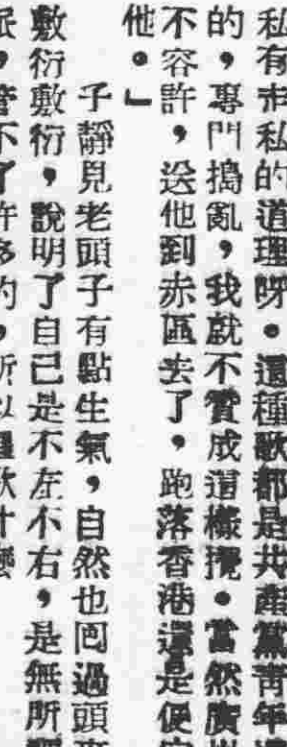 私有市私的道理呀。這種歌都是共產黨青年
的，專門搗亂，我就不贊成這樣攪。當然廣
不容許，送他到赤區去了，跑落香港還是便
他。」
子靜見老頭子有點生氣，自然也囘過頭來
敷衍敷衍，說明了自己是不左不右，是無所
派，管不了許多的，所以